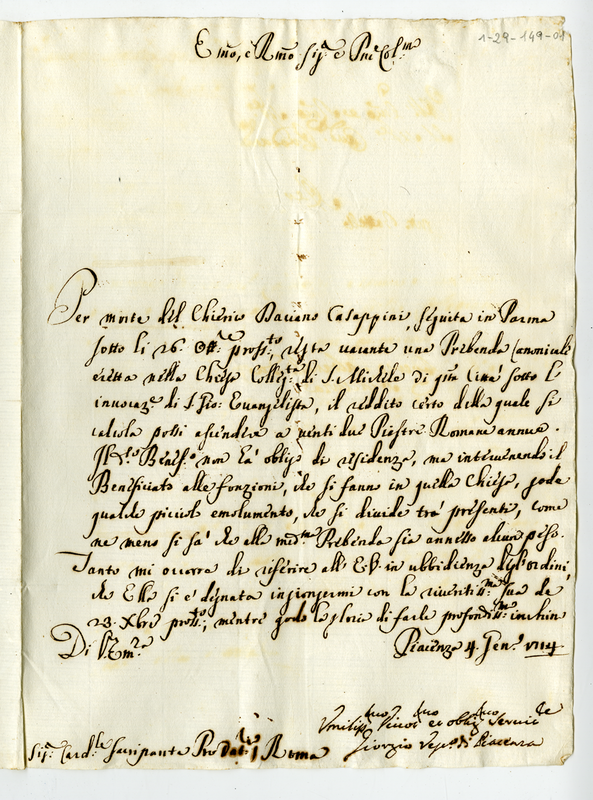 1-29-149-01
Emo, e Rmo Sigr e Pne Colmo
Per morte del Chierico Daciano Casappini, seguita in Parma
sotto li 26. Otte. prossto, resta vacante una Prebenda Canonicale
eretta nella Chiesa Colleg.ta di S. Michele di qta Città sotto l'
invocaz.e di S. Gio: Evangelista, il reddito certo della quale si
calcola possi ascendere a venti due Piastre Romane annue.
Il do Benef.o non há obligo di residenza, ma intervenendo il
Beneficiato alle fonzioni, che si fanno in quella Chiesa, gode
qualche picciolo emolumento, che si divide trà presenti, come
ne meno si sà che alla medma Prebenda sia annesso alcun peso.
Tanto mi occorre di riferire all' E.V. in ubbidienza degl' ordini,
che Ella si è degnata ingiongermi con la riveritissma sua de
23. Xbre prossto; mentre godo la gloria di farle profondissmo inchino
Di V. Emza
Piacenza 4. Gen.o 1714
Umiliss.mo Divot.mo ed oblig.mo Servit.re
Giorgio Vesc.o di Piacenza
Sigr Cardle Sacripante Pro Dat.rio Roma